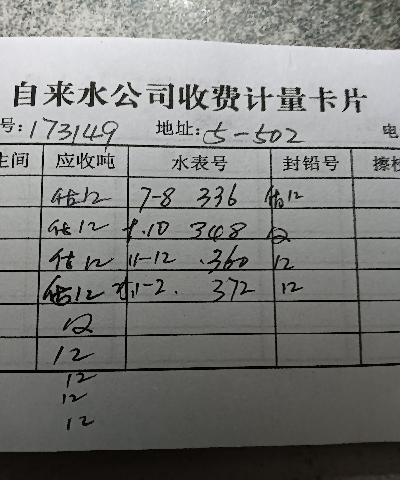 自来水公司收费计量卡片
号:173149 地址:5-502 电
间 应收吨 水表号 封铅号 擦
估12 7-8 336 估12
估12 9.10 348 12
估12 11-12 .360 12
估12 1-2. 372 12
12
12
12
12
12